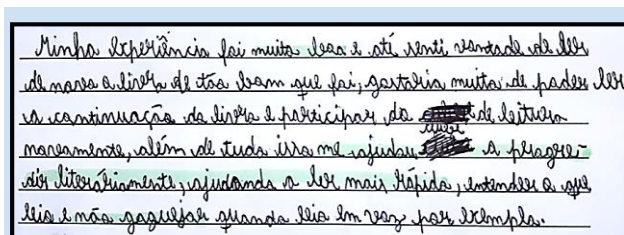 Minha experiência foi muito boa e até senti vontade de ler
de novo o livro de tão bom que foi, gostaria muito de poder ler
a continuação do livro e participar do de leitura
novamente, além de tudo isso me ajudou a progre-
dir literáriamente, ajudando a ler mais rápido, entender o que
leio e não gaguejar quando leio em voz por exemplo.